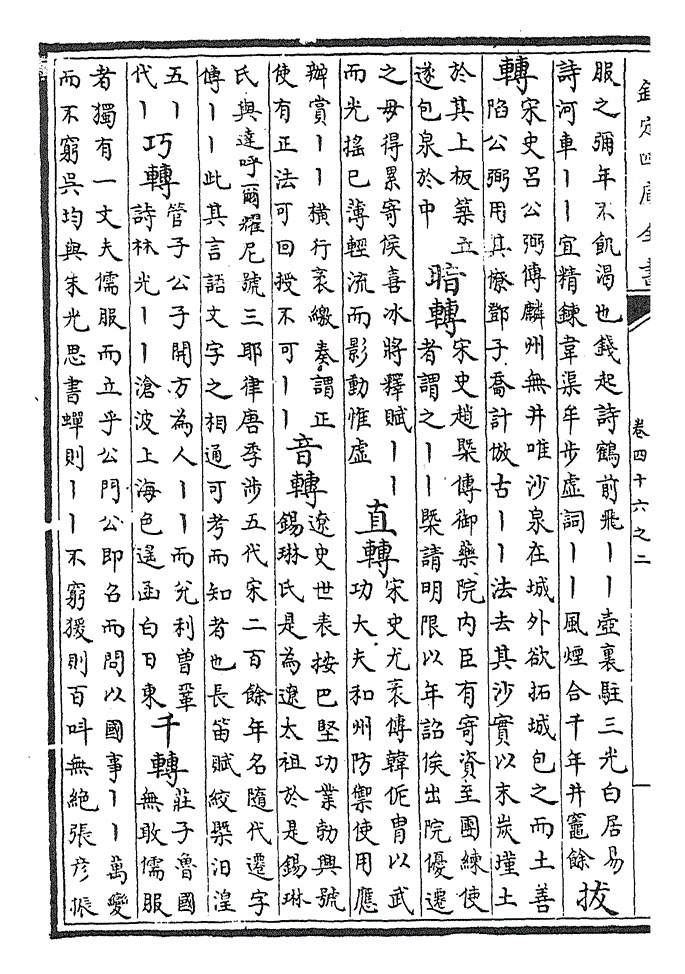 欽定四庫全書
卷四十六之二
服之彌年不飢渴也錢起詩鶴前飛丨丨壺裏駐三光白居易
詩河車丨丨宜精鍊韋渠牟步虛詞丨丨風煙合千年井竈餘
拔
轉
宋史呂公弼傳麟州無井唯沙泉在城外欲拓城包之而土善
陷公弼用其僚鄧子喬計倣古丨丨法去其沙實以末炭墐土
於其上板築立
遂包泉於中
暗轉
宋史趙槩傳御藥院内臣有寄資至團練使
者謂之丨丨槩請明限以年詔俟出院優遷
之毋得累寄侯喜冰將釋賦丨丨
而光搖已薄輕流而影動惟虛
直轉
宋史尤袤傳韓侂胄以武
功大夫和州防禦使用應
辦賞丨丨橫行袤繳奏謂正
使有正法可回授不可丨丨
音轉
遼史世表按巴堅功業勃興號
錫琳氏是為遼太祖於是錫琳
氏與達呼爾耀尼號三耶律唐季涉五代宋二百餘年名隨代遷字
傳丨丨此其言語文字之相通可考而知者也長笛賦絞槩汩湟
五丨
代丨
巧轉
管子公子開方為人丨丨而兊利曾鞏
詩林光丨丨滄波上海色遥函白日東
千轉
莊子魯國
無敢儒服
者獨有一丈夫儒服而立乎公門公即召而問以國事丨丨萬變
而不窮吳均與朱光思書蟬則丨丨不窮猨則百呌無絶張彦振